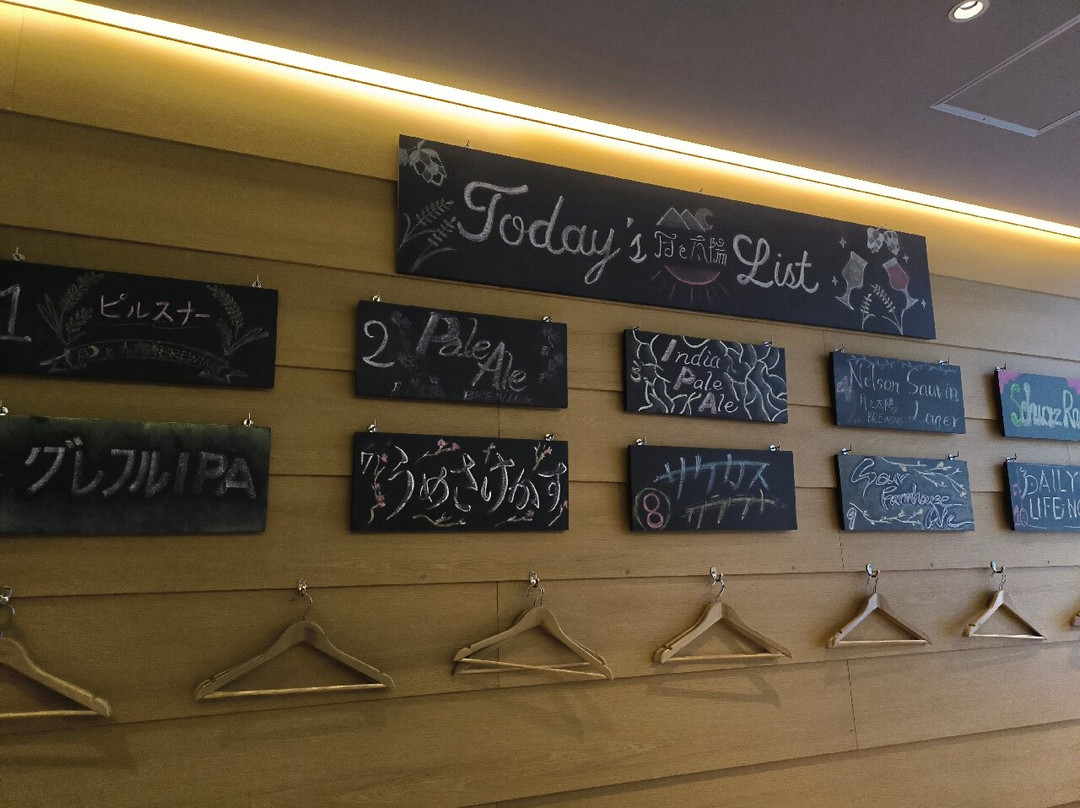 Today's 月と太陽 List
1
ピルスナー
月と太陽BREWING
2
Pale
Ale
BREWING
3
India
Pale
Ale
Nelson Sauvin
月と太陽
BREWING Lager
グレフルIPA
7
うめさけかす
8
サケカス
9
Sour
Farmhouse
Ale
10
DAILY